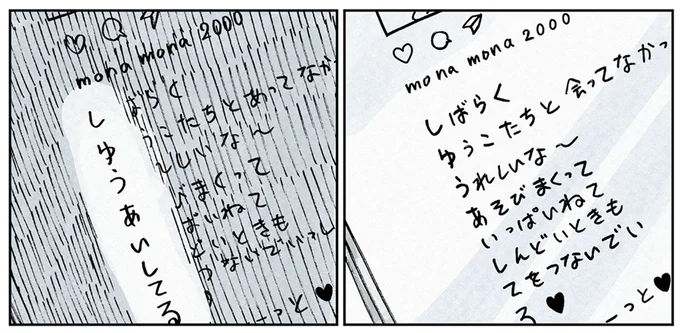 mona mona 2000
しゅうあいしてる
ばらく
うこたちとあってなか
しいな〜
びまくって
ぱいねて
どいときも
ないでいっし
ーっと♥
mona mona 2000
しばらく
ゆうこたちと会ってなかっ
うれしいな〜
あそびまくって
いっぱいねて
しんどいときも
てをつないでい
る♥
ーっと♥